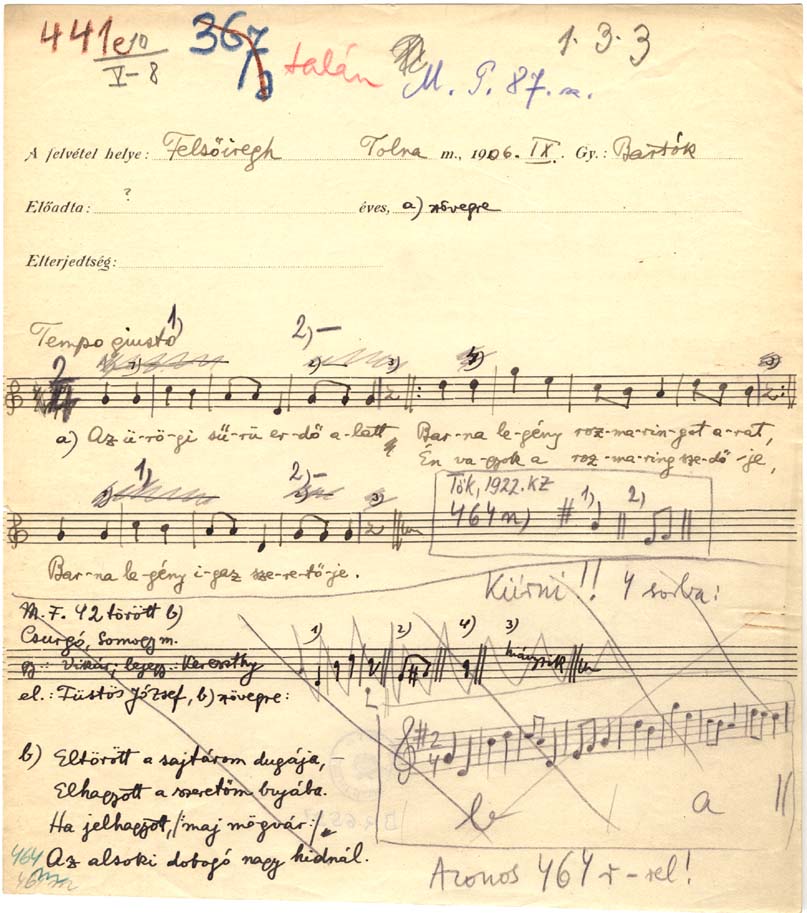 441e 10/V-8 367/b talán M. P. 87. 1. 3. 3
A felvétel helye: Felsőiregh Tolna m., 1906. IX. Gy.: Bartók
Előadta: ? éves, a) szövegre
Elterjedtség:
Tempo giusto 1) 2)
a) Az ü-rö-gi sű-rü er-dő a-latt Bar-na le-gény roz-ma-rin-got a-rat,
Én va-gyok a roz-ma-ring sze-dő-je,
1) 2) 3)
Tök, 1922. KZ
464n) 1) 2)
Bar-na le-gény i-gaz sze-re-tő-je.
Kiírni!! 4 sorba:
M. F. 42 törött b)
Csurgó, Somogy m.
gy.: Vikár; lejegy.: Kereszthy
1) 2) 4) 3) hiányzik
el.: Füstös József, b) szövegre:
2/4
b) Eltörött a sajtárom dugája, –
Elhagyott a szeretöm bujába.
Ha jelhagyot, /: maj mögvár :/
Az alsoki dobogó nagy hidnál.
b a
464
Azonos 464 r-rel!